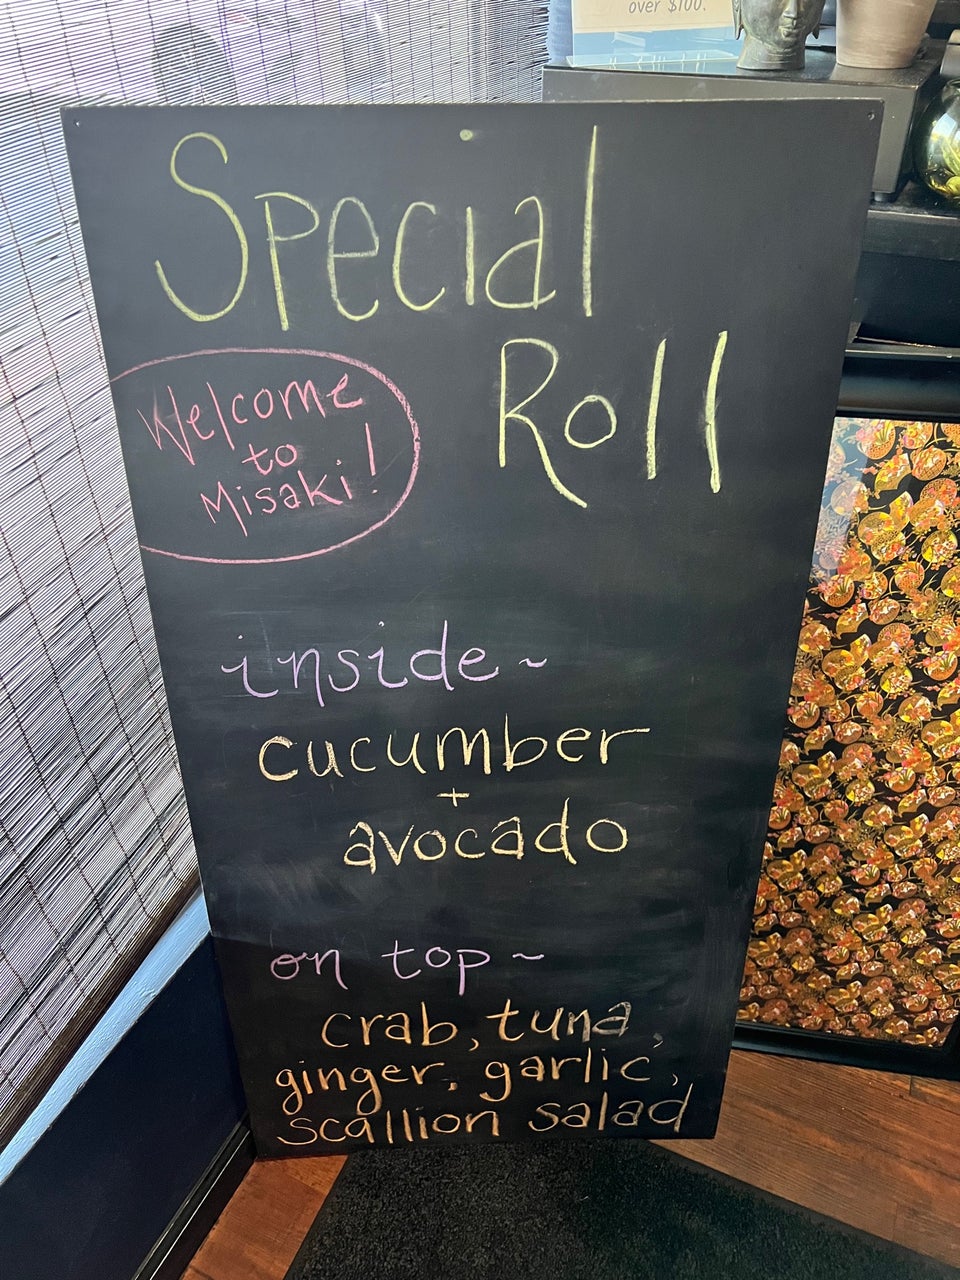 over $100.
Special
Roll
Welcome
to
Misaki!
inside~
cucumber
+
avocado
on top~
crab, tuna,
ginger, garlic,
scallion salad